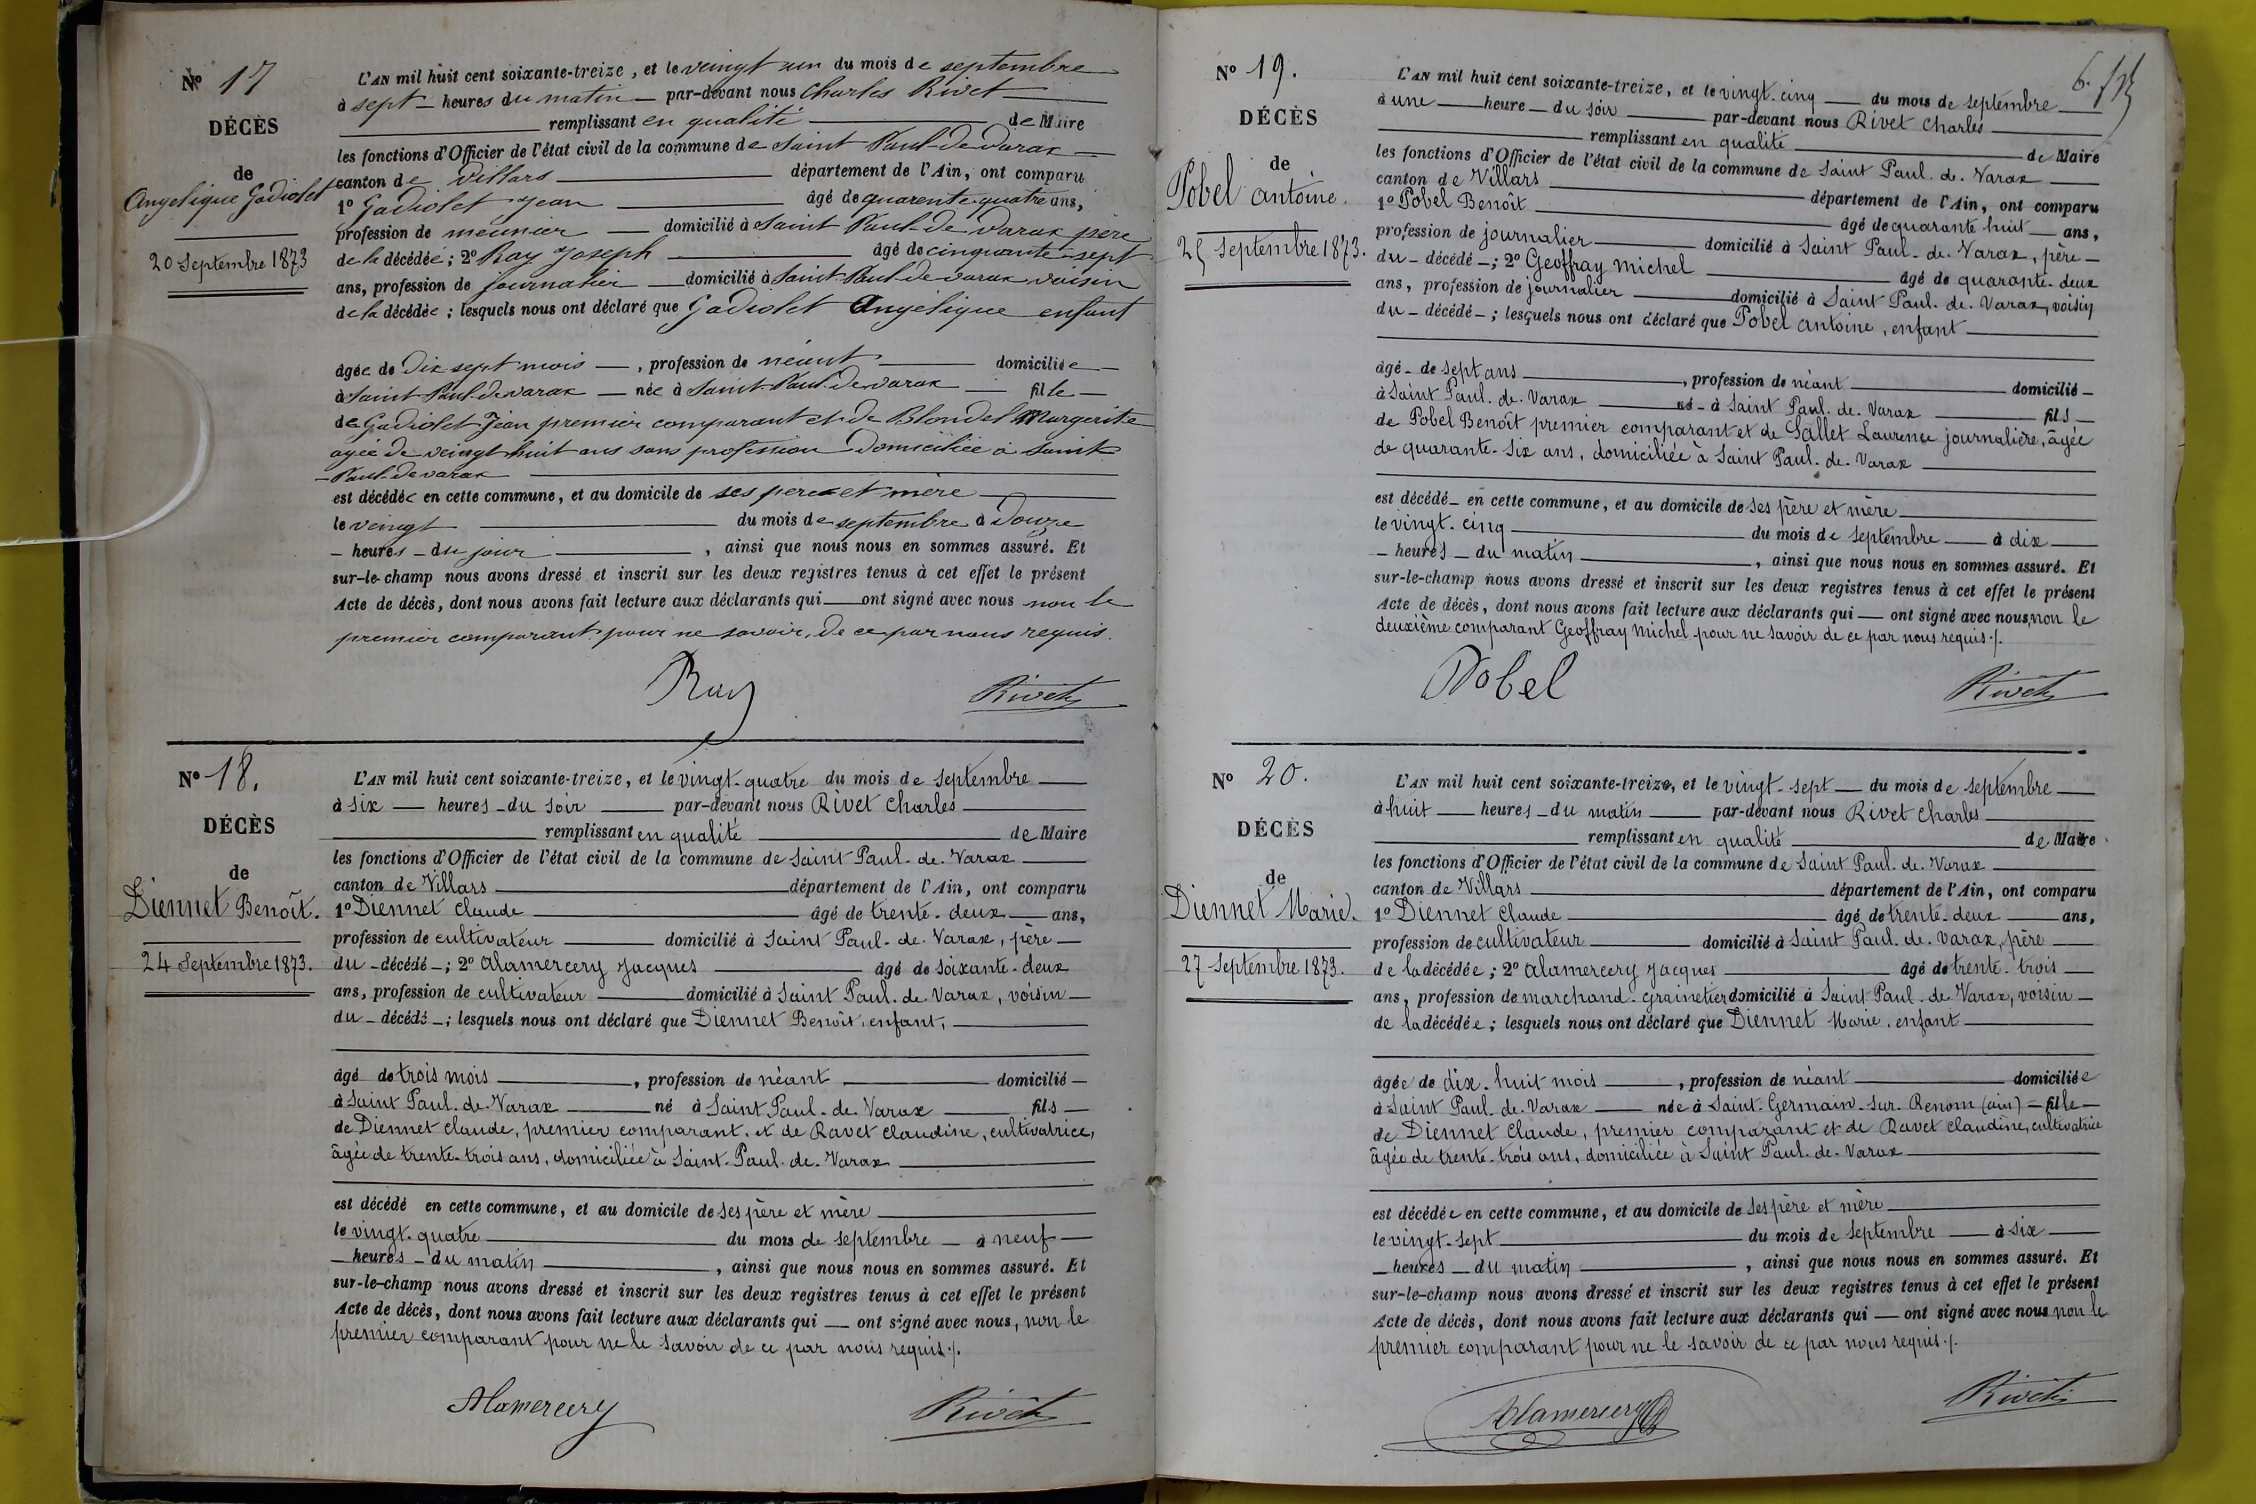 Nº 17
DÉCÈS
de
Angelique Gadiolet
20 Septembre 1873
L'AN mil huit cent soixante-treize, et le veingt un du mois de septembre
à sept heures du matin par-devant nous Charles Rivet
remplissant en qualité de Maire
les fonctions d'Officier de l'état civil de la commune de Saint Paul-de-Varax
canton de Villars département de l'Ain, ont comparu
1º Gadiolet Jean âgé de quarente quatre ans,
profession de meunier domicilié à Saint Paul-de Varax père
de la décédée ; 2º Ray Joseph âgé de cinquante-sept
ans, profession de journalier domicilié à Saint-Paul-de varax voisin
de la décédée ; lesquels nous ont déclaré que Gadiolet Angelique enfant
âgée de Dix sept mois, profession de néant domiciliée
à Saint Paul-de varax née à Saint-Paul-de-varax fille
de Gadiolet Jean premier comparant et de Blondel Margerite
agée de veingt huit ans sans profession domiciliée à Saint
-Paul-de varax
est décédée en cette commune, et au domicile de ses pere et mère
le veingt du mois de septembre à Douze
heures du jour, ainsi que nous nous en sommes assuré. Et
sur-le-champ nous avons dressé et inscrit sur les deux registres tenus à cet effet le présent
Acte de décès, dont nous avons fait lecture aux déclarants qui ont signé avec nous non le
premier comparant pour ne savoir, de ce par nous requis.
Ray Rivet
Nº 18.
DÉCÈS
de
Diennet Benoît.
24 Septembre 1873.
L'AN mil huit cent soixante-treize, et le vingt-quatre du mois de Septembre
à Six heures du Soir par-devant nous Rivet Charles
remplissant en qualité de Maire
les fonctions d'Officier de l'état civil de la commune de Saint Paul-de-Varax
canton de Villars département de l'Ain, ont comparu
1º Diennet Claude âgé de trente-deux ans,
profession de cultivateur domicilié à Saint Paul-de-Varax, père
du décédé ; 2º Alamercery Jacques âgé de Soixante-deux
ans, profession de cultivateur domicilié à Saint Paul-de-Varax, voisin
du décédé ; lesquels nous ont déclaré que Diennet Benoît, enfant,
âgé de trois mois, profession de néant domicilié
à Saint Paul-de-Varax né à Saint Paul-de-Varax fils
de Diennet Claude, premier comparant et de Ravet Claudine, cultivatrice,
âgée de trente-trois ans, domiciliée à Saint-Paul-de-Varax
est décédé en cette commune, et au domicile de Ses père et mère
le vingt-quatre du mois de Septembre à neuf
heures du matin, ainsi que nous nous en sommes assuré. Et
sur-le-champ nous avons dressé et inscrit sur les deux registres tenus à cet effet le présent
Acte de décès, dont nous avons fait lecture aux déclarants qui ont signé avec nous, non le
premier comparant pour ne le savoir de ce par nous requis./.
Alamercery Rivet
6.
Nº 19.
DÉCÈS
de
Pobel Antoine.
25 Septembre 1873.
L'AN mil huit cent soixante-treize, et le vingt-cinq du mois de Septembre
à une heure du Soir par-devant nous Rivet Charles
remplissant en qualité de Maire
les fonctions d'Officier de l'état civil de la commune de Saint Paul-de-Varax
canton de Villars département de l'Ain, ont comparu
1º Pobel Benoît âgé de quarante huit ans,
profession de journalier domicilié à Saint Paul-de-Varax, père
du décédé ; 2º Geoffray Michel âgé de quarante-deux
ans, profession de journalier domicilié à Saint Paul-de-Varax, voisin
du décédé ; lesquels nous ont déclaré que Pobel Antoine, enfant
âgé de Sept ans, profession de néant domicilié
à Saint Paul-de-Varax né à Saint Paul-de-Varax fils
de Pobel Benoît premier comparant et de Sallet Laurence journalière, âgée
de quarante-Six ans, domiciliée à Saint Paul-de-Varax
est décédé en cette commune, et au domicile de Ses père et mère
le vingt-cinq du mois de Septembre à dix
heures du matin, ainsi que nous nous en sommes assuré. Et
sur-le-champ nous avons dressé et inscrit sur les deux registres tenus à cet effet le présent
Acte de décès, dont nous avons fait lecture aux déclarants qui ont signé avec nous, non le
deuxième comparant Geoffray Michel pour ne Savoir de ce par nous requis./.
Pobel Rivet
Nº 20.
DÉCÈS
de
Diennet Marie.
27 Septembre 1873.
L'AN mil huit cent soixante-treize, et le vingt-Sept du mois de Septembre
à huit heures du matin par-devant nous Rivet Charles
remplissant en qualité de Maire
les fonctions d'Officier de l'état civil de la commune de Saint Paul-de-Varax
canton de Villars département de l'Ain, ont comparu
1º Diennet Claude âgé de trente-deux ans,
profession de cultivateur domicilié à Saint Paul-de-Varax, père
de la décédée ; 2º Alamercery Jacques âgé de trente-trois
ans, profession de marchand-grainetier domicilié à Saint Paul-de-Varax, voisin
de la décédée ; lesquels nous ont déclaré que Diennet Marie, enfant
âgée de dix-huit mois, profession de néant domiciliée
à Saint Paul-de-Varax née à Saint-Germain-Sur-Renom (ain) fille
de Diennet Claude, premier comparant et de Ravet Claudine, cultivatrice
âgée de trente-trois ans, domiciliée à Saint Paul-de-Varax
est décédée en cette commune, et au domicile de Ses père et mère
le vingt-Sept du mois de Septembre à Six
heures du matin, ainsi que nous nous en sommes assuré. Et
sur-le-champ nous avons dressé et inscrit sur les deux registres tenus à cet effet le présent
Acte de décès, dont nous avons fait lecture aux déclarants qui ont signé avec nous non le
premier comparant pour ne le savoir de ce par nous requis./.
Alamercery Rivet